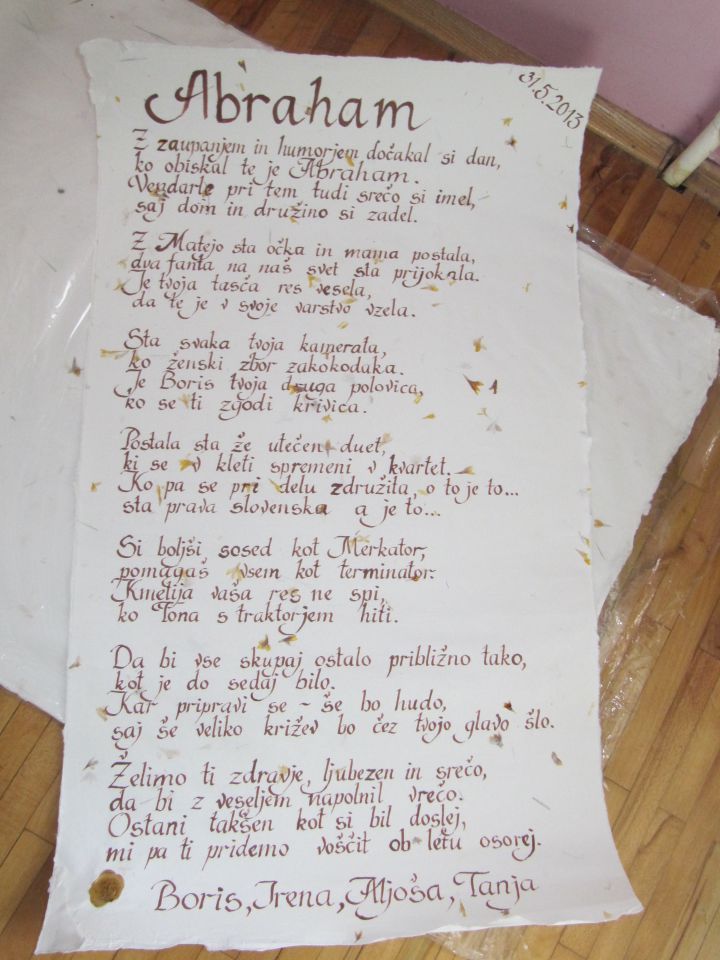 Abraham
31.5.2013
Z zaupanjem in humorjem dočakal si dan,
ko obiskal te je Abraham.
Vendarle pri tem tudi srečo si imel,
saj dom in družino si zadel.
Z Matejo sta očka in mama postala,
dva fanta na naš svet sta prijokala.
Je tvoja tašča res vesela,
da te je v svoje varstvo vzela.
Sta svaka tvoja kamerata,
ko ženski zbor zakokodaka.
Je Boris tvoja druga polovica,
ko se ti zgodi krivica.
Postala sta že utečen duet,
ki se v kleti spremeni v kvartet.
Ko pa se pri delu združita, o to je to...
sta prava slovenska a je to...
Si boljši sosed kot Merkator,
pomagaš vsem kot terminator.
Kmetija vaša res ne spi,
ko Tona s traktorjem hiti.
Da bi vse skupaj ostalo približno tako,
kot je do sedaj bilo.
Kar pripravi se - še bo hudo,
saj še veliko križev bo čez tvojo glavo šlo.
Želimo ti zdravje, ljubezen in srečo,
da bi z veseljem napolnil vrečo.
Ostani takšen kot si bil doslej,
mi pa ti pridemo voščit ob letu osorej.
Boris, Irena, Aljoša, Tanja